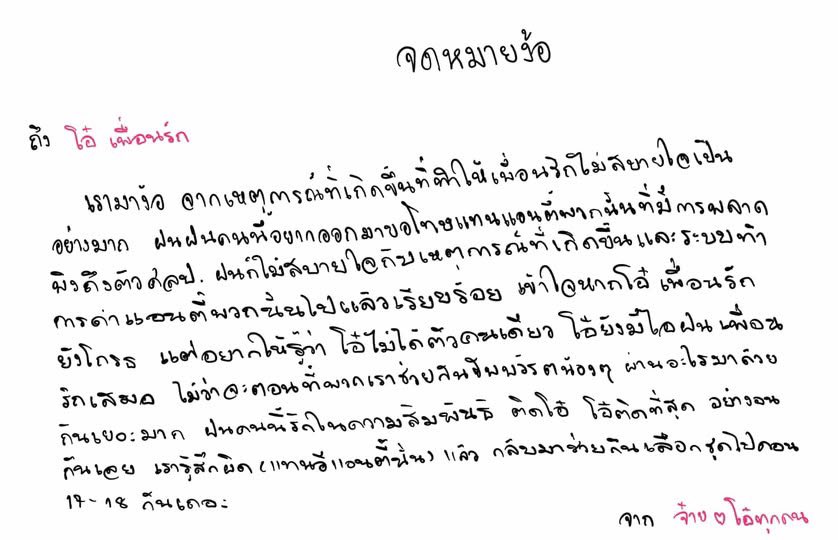 จดหมายง้อ
ถึง โอ๋ เพื่อนรัก
เรามาง้อ จากเหตุการณ์ที่เกิดขึ้นที่ทำให้เพื่อนรักไม่สบายใจเป็น
อย่างมาก ฝนฝนคนนี้อยากออกมาขอโทษแทนแอนตี้พวกนั้นที่มีการพลาด
พิงถึงตัวศิลป. ฝนก็ไม่สบายใจกับเหตุการณ์ที่เกิดขึ้นและระบบทำ
การด่าแอนตี้พวกนั้นไปแล้วเรียบร้อย เข้าใจหากโอ๋ เพื่อนรัก
ยังโกรธ แต่อยากให้รู้ว่า โอ๋ไม่ได้ตัวคนเดียว โอ๋ยังมีไอฝนเพื่อน
รักเสมอ ไม่ว่าจะตอนที่พวกเราช่วยกันซัพพอร์ตน้องๆ ผ่านอะไรมาด้วย
กันเยอะมาก ฝนคนนี้รักในความสัมพันธ์ ติดโอ๋ โอ๋ติดที่สุด อย่างอน
กันเลย เรารู้สึกผิด(แทนอีแอนตี้นั่น) แล้ว กลับมาช่วยกันเลือกชุดไปคอน
17-18 กันเถอะ
จาก จ๋าย ๆ โอ๋ทุกคน